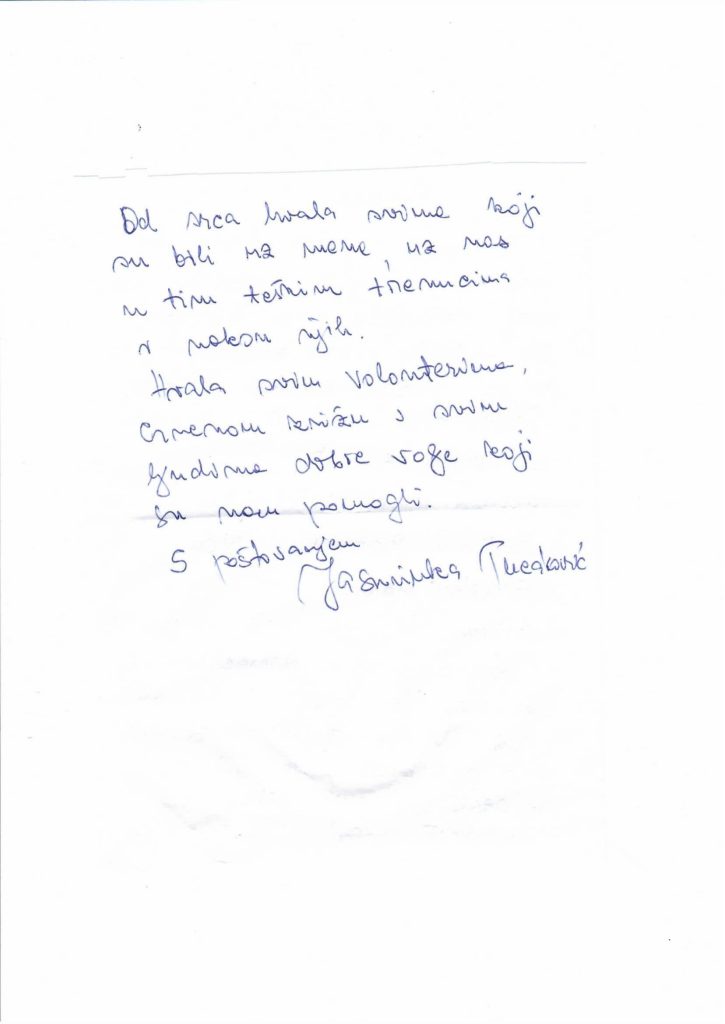 Od srca hvala svima koji
su bili uz mene, uz nas
u tim teškim trenucima
i nakon njih.
Hvala svim volonterima,
Crvenom križu i svim
ljudima dobre volje koji
su nam pomogli.
S poštovanjem
Jasminka